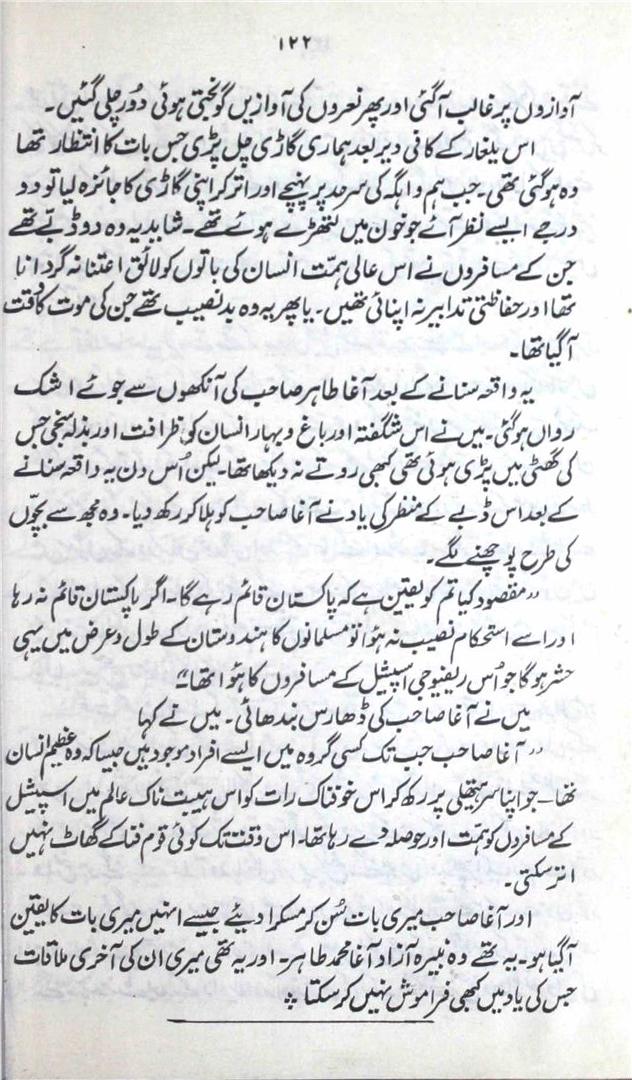 ۱۲۲
آوازوں پر غالب آگئی اور پھر نعروں کی آوازیں گونجتی ہوئی دُور چلی گئیں۔
اس یلغار کے کافی دیر بعد ہماری گاڑی چل پڑی جس بات کا انتظار تھا
وہ ہو گئی تھی۔ جب ہم واہگہ کی سرحد پر پہنچے اور اتر کر اپنی گاڑی کا جائزہ لیا تو دو
درجے ایسے نظر آئے جو خون میں لتھڑے ہوئے تھے۔ شاید یہ وہ دو ڈبّے تھے
جن کے مسافروں نے اس عالی ہمّت انسان کی باتوں کو لائق اعتنا نہ گردانا
تھا اور حفاظتی تدابیر نہ اپنائی تھیں۔ یا پھر یہ وہ بدنصیب تھے جن کی موت کا وقت
آگیا تھا۔
یہ واقعہ سنانے کے بعد آغا طاہر صاحب کی آنکھوں سے جوئے اشک
رواں ہو گئی۔ میں نے اس شگفتہ اور باغ و بہار انسان کو ظرافت اور بذلہ سنجی جس
کی گھٹی میں پڑی ہوئی تھی کبھی روتے نہ دیکھا تھا۔ لیکن اُس دن یہ واقعہ سنانے
کے بعد اس ڈبے کے منظر کی یاد نے آغا صاحب کو ہلا کر رکھ دیا۔ وہ مجھ سے بچّوں
کی طرح پوچھنے لگے۔
”مقصود کیا تم کو یقین ہے کہ پاکستان قائم رہے گا۔ اگر پاکستان قائم نہ رہا
اور اسے استحکام نصیب نہ ہوا تو مسلمانوں کا ہندوستان کے طول و عرض میں یہی
حشر ہوگا جو اُس ریفیوجی اسپیشل کے مسافروں کا ہوا تھا“
میں نے آغا صاحب کی ڈھارس بندھائی۔ میں نے کہا
”آغا صاحب جب تک کسی گروہ میں ایسے افراد موجود ہیں جیسا کہ وہ عظیم انسان
تھا۔ جو اپنا سر ہتھیلی پر رکھ کر اس خوفناک رات کو اس ہیبت ناک عالم میں اسپیشل
کے مسافروں کو ہمّت اور حوصلہ دے رہا تھا۔ اس وقت تک کوئی قوم فنا کے گھاٹ نہیں
اتر سکتی۔
اور آغا صاحب میری بات سُن کر مسکرا دیئے جیسے انہیں میری بات کا یقین
آگیا ہو۔ یہ تھے وہ نبیرہ آزاد آغا محمد طاہر۔ اور یہ تھی میری ان کی آخری ملاقات
جس کی یاد میں کبھی فراموش نہیں کر سکتا ؞